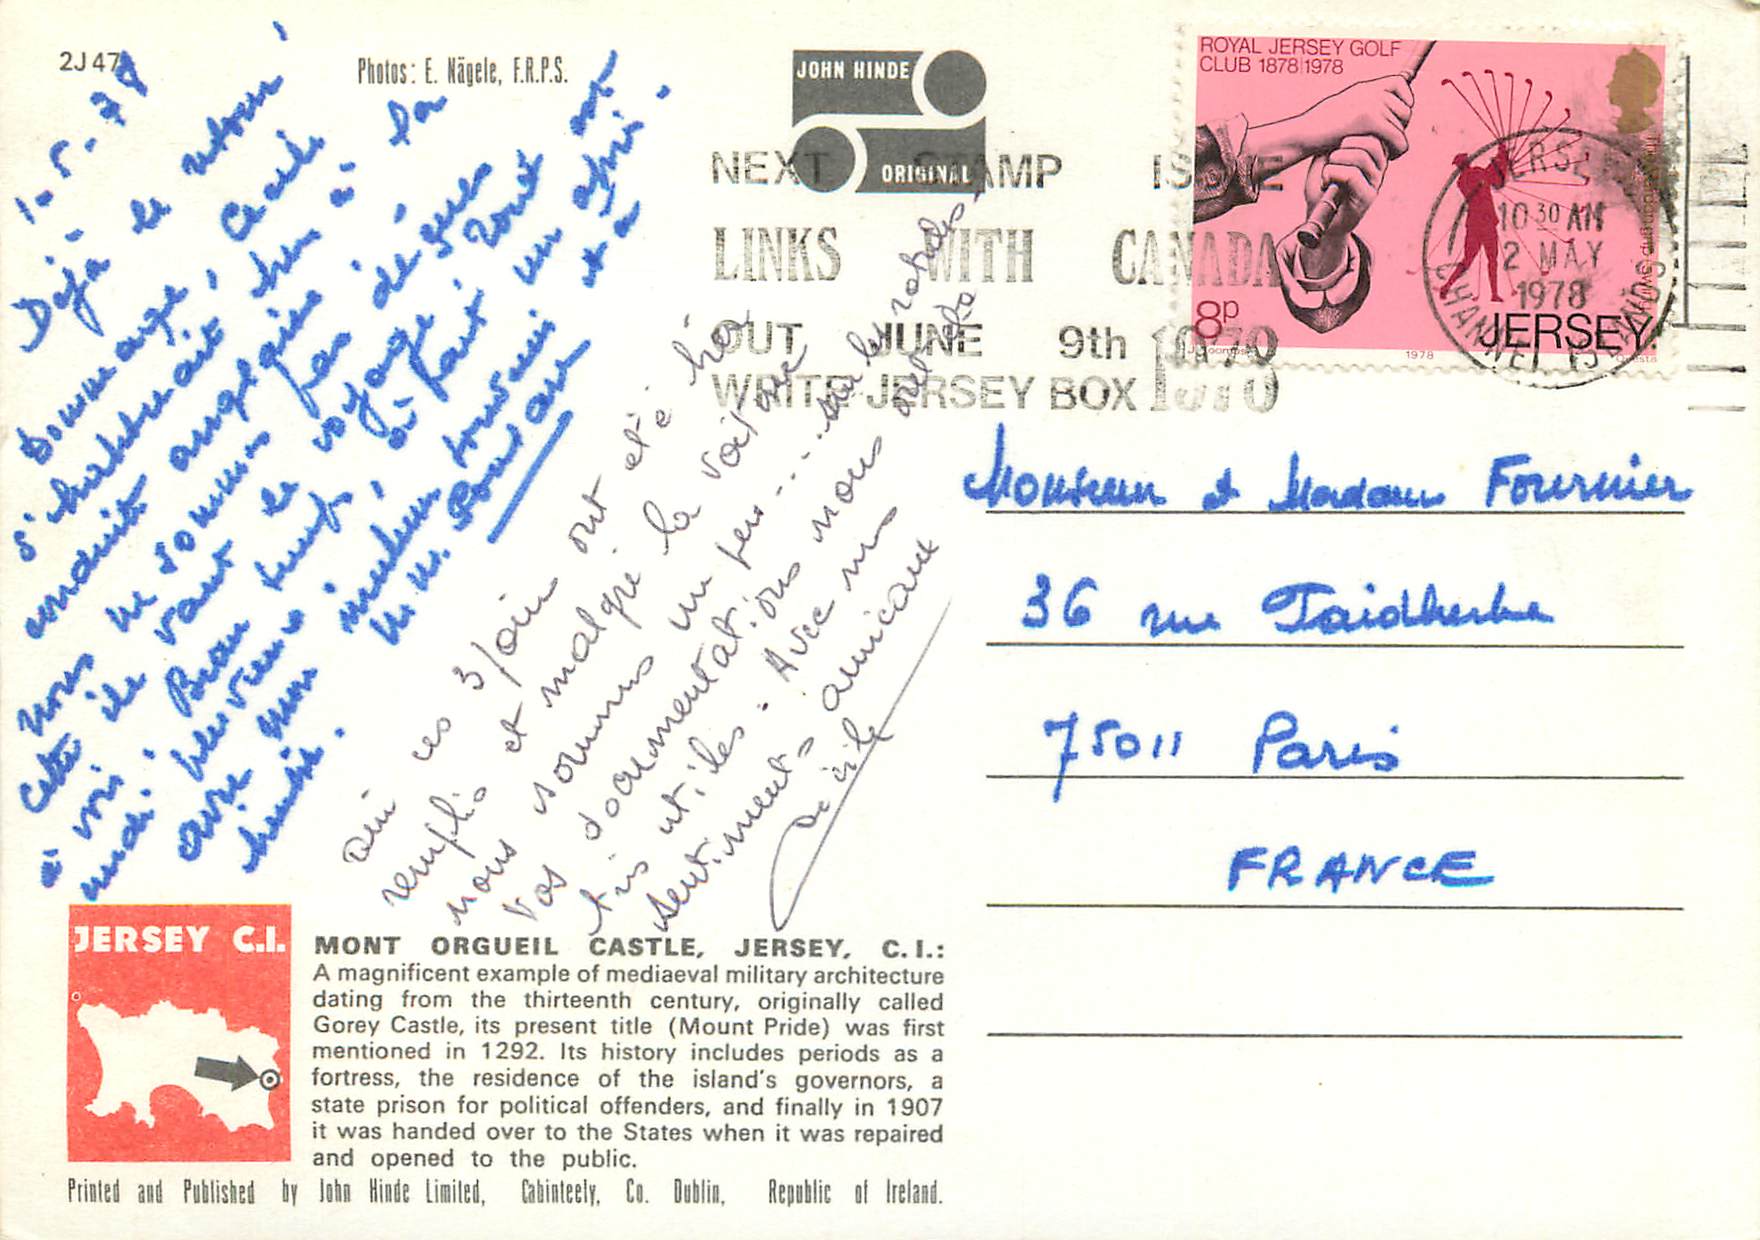 2J47
Photos: E. Nägele, F.R.P.S.
JOHN HINDE
ORIGINAL
ROYAL JERSEY GOLF
CLUB 1878/1978
8p
1978
JERSEY
JERSEY
10 30 AM
2 MAY
1978
CHANNEL ISLANDS
NEXT STAMP ISSUE
LINKS WITH CANADA
OUT JUNE 9th 1978
WRITE JERSEY BOX
1-5-78
Déjà le retour!
Dommage, Cécile
s'habituait bien à la
conduite anglaise
nous ne sommes pas déçues
cette île vaut le voyage
à voir. Beau temps,
midi, pluvieux
avec un
heureux.
meilleur souvenir
M. M. Poul
ces 3 jours ont été bien
remplis et malgré la voiture
nous sommes un peu.... sur les rotules.
Vos documentations nous ont été
très utiles. Avec mes
sentiments amicaux
Cécile
Monsieur et Madame Fournier
36 rue Faidherbe
75011 Paris
FRANCE
JERSEY C.I.
MONT ORGUEIL CASTLE, JERSEY, C.I.:
A magnificent example of mediaeval military architecture
dating from the thirteenth century, originally called
Gorey Castle, its present title (Mount Pride) was first
mentioned in 1292. Its history includes periods as a
fortress, the residence of the island's governors, a
state prison for political offenders, and finally in 1907
it was handed over to the States when it was repaired
and opened to the public.
Printed and Published by John Hinde Limited, Cabinteely, Co. Dublin, Republic of Ireland.